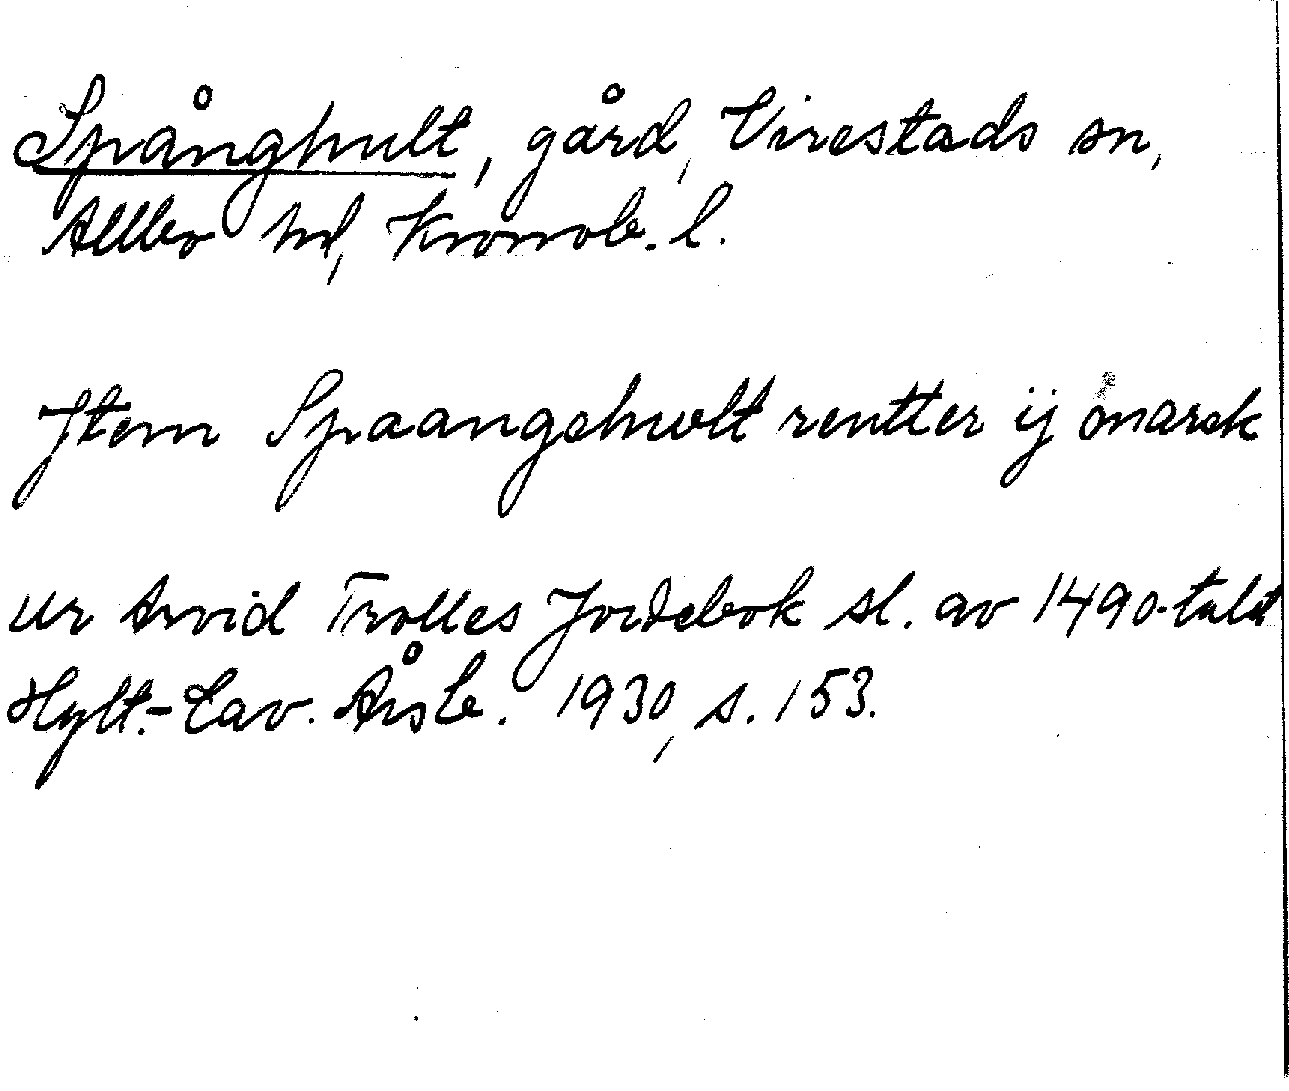 Spånghult, gård, Virestads sn,
Allbo hd, Kronob. l.
Jtem Spaangehwlt rentter ij marck
ur Arvid Trolles Jordebok sl. av 1490-talet
Hylt.-Cav. Årsb. 1930, s. 153.